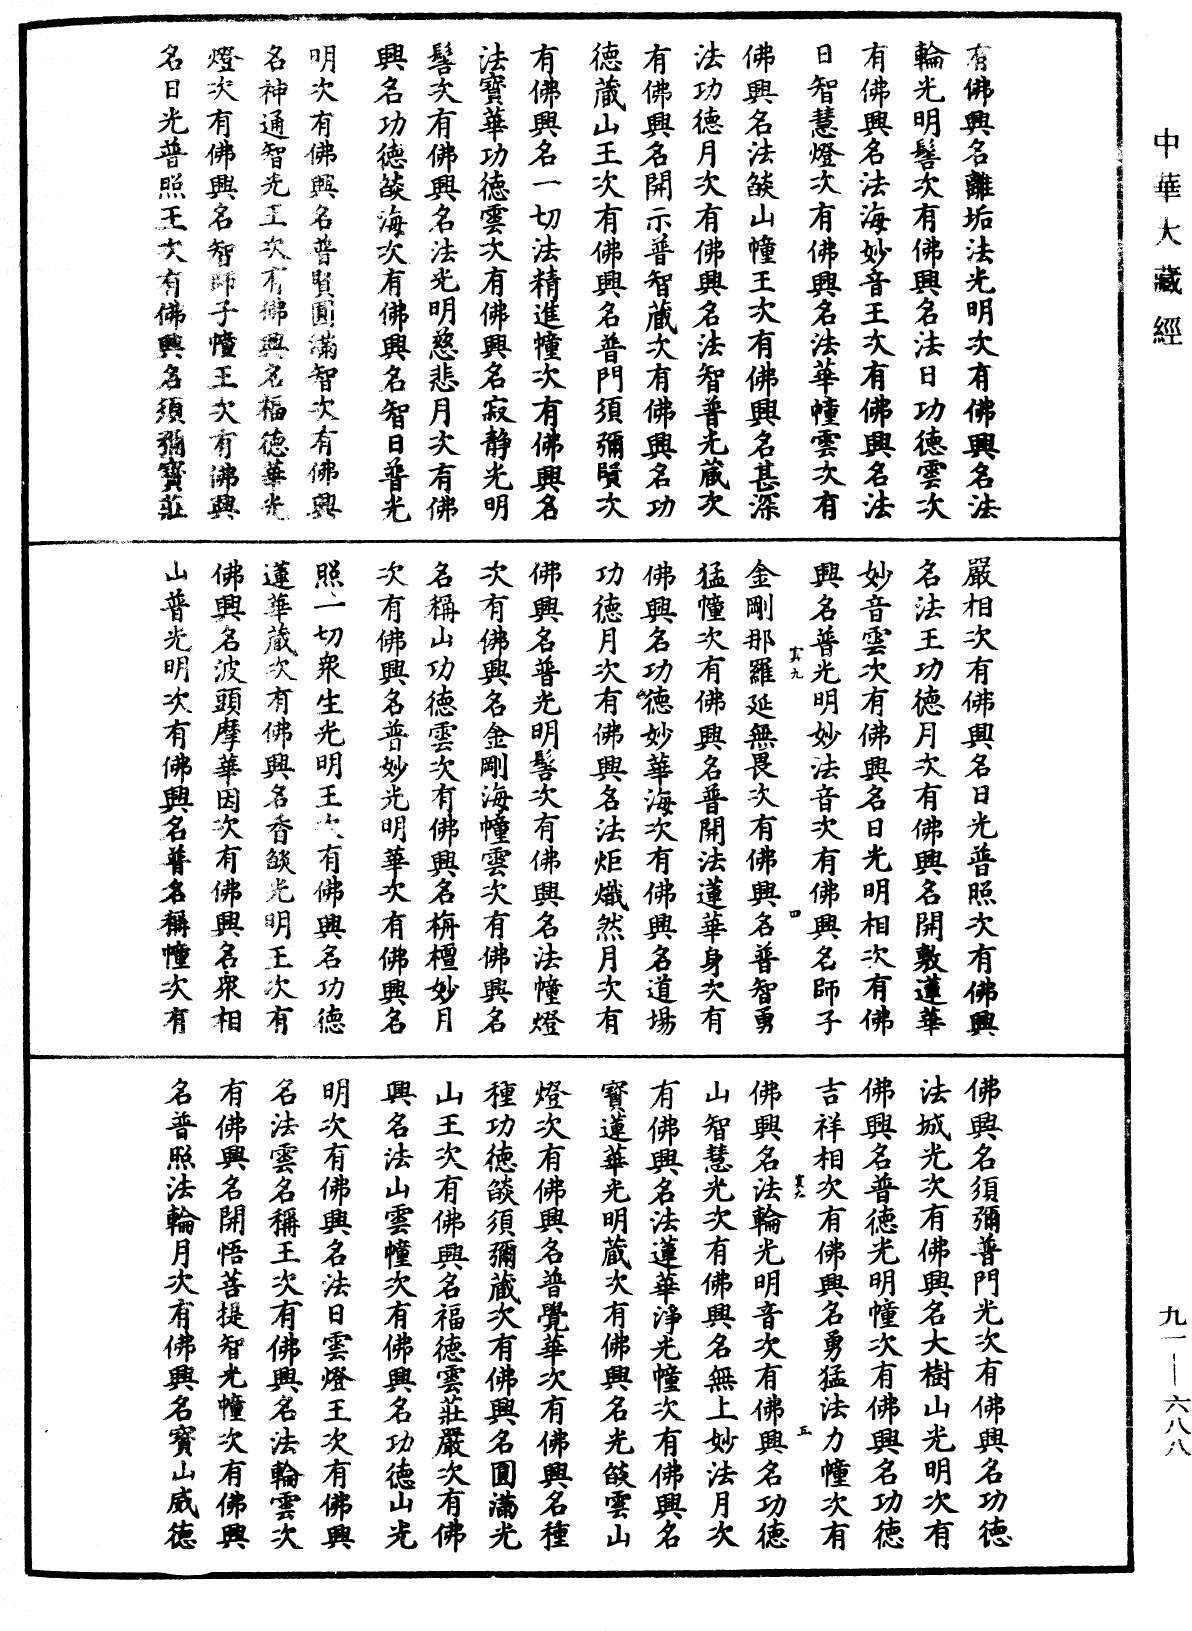 中華大藏經
有佛興名離垢法光明次有佛興名法
輪光明髻次有佛興名法日功德雲次
有佛興名法海妙音王次有佛興名法
日智慧燈次有佛興名法華幢雲次有
佛興名法燄山幢王次有佛興名甚深
法功德月次有佛興名法智普光藏次
有佛興名開示普智藏次有佛興名功
德藏山王次有佛興名普門須彌賢次
有佛興名一切法精進幢次有佛興名
法寶華功德雲次有佛興名寂静光明
髻次有佛興名法光明慈悲月次有佛
興名功德燄海次有佛興名智日普光
明次有佛興名普賢圓滿智次有佛興
名神通智光王次有佛興名福德華光
燈次有佛興名智師子幢王次有佛興
名日光普照王次有佛興名須彌寶莊
嚴相次有佛興名日光普照次有佛興
名法王功德月次有佛興名開敷蓮華
妙音雲次有佛興名日光明相次有佛
興名普光明妙法音次有佛興名師子
金剛那羅延無畏次有佛興名普智勇
猛幢次有佛興名普開法蓮華身次有
佛興名功德妙華海次有佛興名道場
功德月次有佛興名法炬熾然月次有
佛興名普光明髻次有佛興名法幢燈
次有佛興名金剛海幢雲次有佛興名
名稱山功德雲次有佛興名栴檀妙月
次有佛興名普妙光明華次有佛興名
照一切衆生光明王次有佛興名功德
蓮華藏次有佛興名香燄光明王次有
佛興名波頭摩華因次有佛興名衆相
山普光明次有佛興名普名稱幢次有
佛興名須彌普門光次有佛興名功德
法城光次有佛興名大樹山光明次有
佛興名普德光明幢次有佛興名功德
吉祥相次有佛興名勇猛法力幢次有
佛興名法輪光明音次有佛興名功德
山智慧光次有佛興名無上妙法月次
有佛興名法蓮華淨光幢次有佛興名
寶蓮華光明藏次有佛興名光燄雲山
燈次有佛興名普覺華次有佛興名種
種功德燄須彌藏次有佛興名圓滿光
山王次有佛興名福德雲莊嚴次有佛
興名法山雲幢次有佛興名功德山光
明次有佛興名法日雲燈王次有佛興
名法雲名稱王次有佛興名法輪雲次
有佛興名開悟菩提智光幢次有佛興
名普照法輪月次有佛興名寶山威德
九一—六八八
四
五